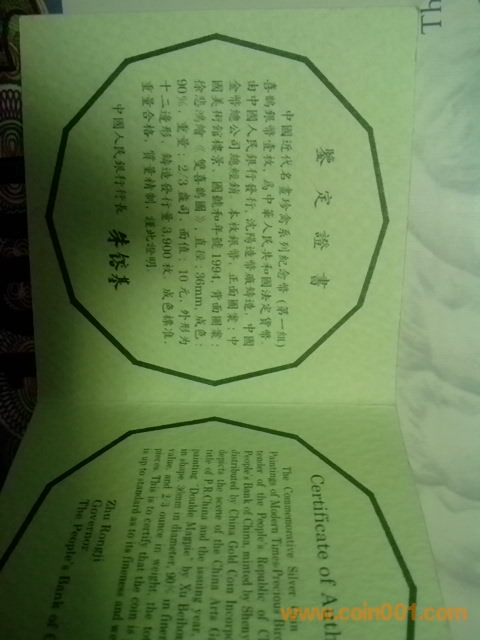 鉴定證書
中國近代名畫珍禽系列紀念幣(第一組)
喜鵲銀幣壹枚,爲中華人民共和國法定貨幣,
由中國人民銀行發行,沈陽造幣廠鑄造,中國
金幣總公司總經銷。本枚銀幣,正面圖案:中
國美術館樓景、國號和年號1994,背面圖案:
徐悲鴻繪《雙喜鵲圖》,直徑:36mm,成色:
90%,重量:2/3盎司,面值:10元,外形为
十二邊形,鑄造發行量3,900枚,成色標准,
重量合格,質量精制,謹此證明。
中國人民銀行行長
朱鎔基
Certificate of Auth
The Commemorative Silver Coin
Paintings of Modern Times-Precious Bird
tender of the People's Republic of C
People's Bank of China, minted by Sheny
distributed by China Gold Coin Incorpo
depicts the scene of the China Arts Ga
title of P.R.China and the issuing year,
painting "Double Magpie" by Xu Beihon
in shape, 36mm in diameter, 90% in finen
value, and 2/3 ounce in weight, the to
pieces. This is to certify that the coin is
is up to standard as to its fineness and we
Zhu Rongji
Governor
The People's Bank of C
Th
www.coin001.com